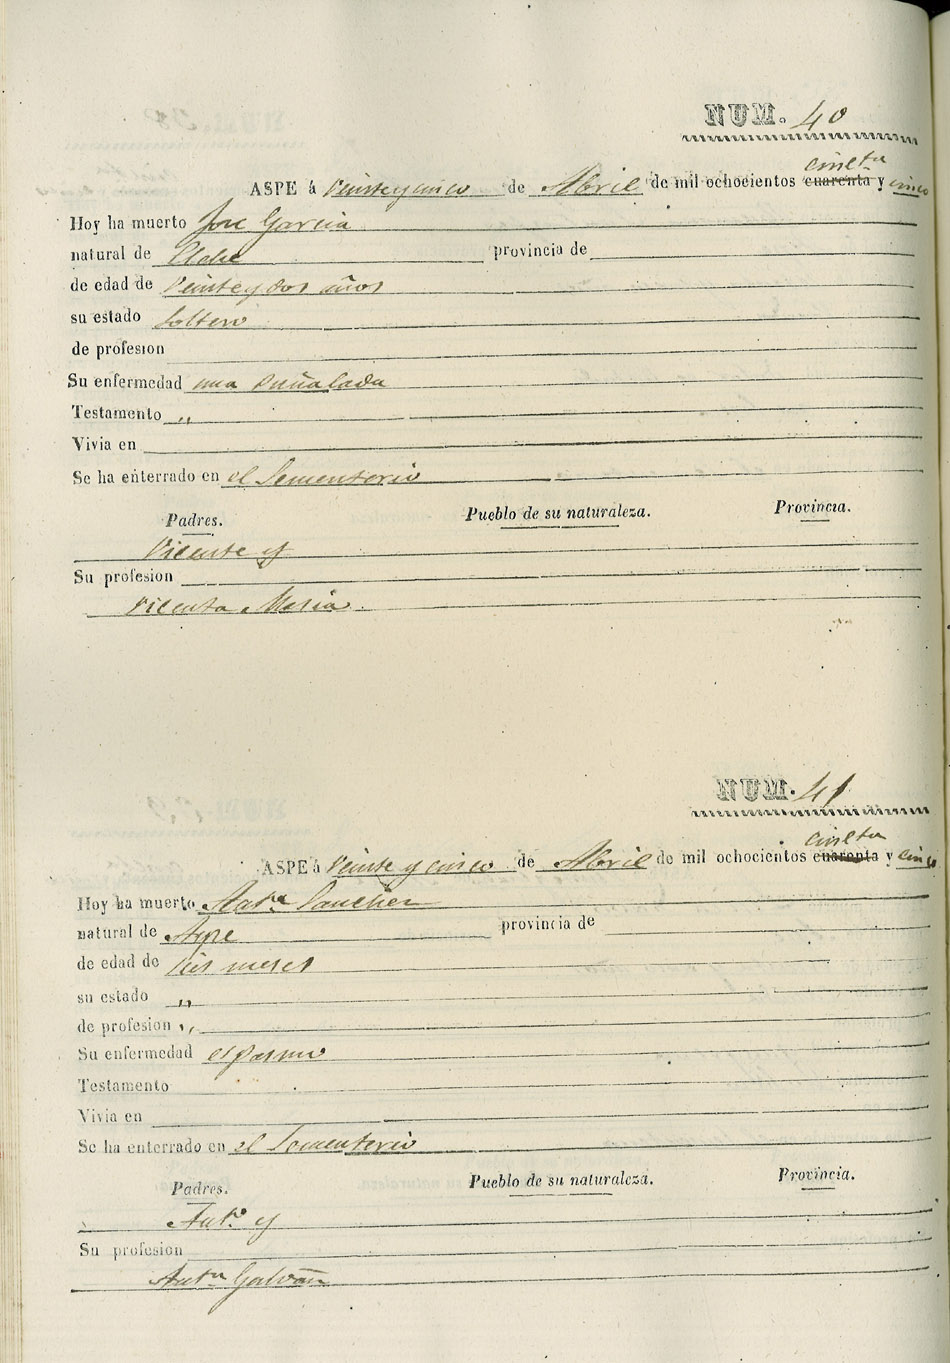 NUM. 40
cincta
ASPE á Veinte y cinco de Abril de mil ochocientos cuarenta y cinco
Hoy ha muerto Jose Garcia
natural de Elche provincia de
de edad de Veinte y dos años
su estado Soltero
de profesion
Su enfermedad una puñalada
Testamento „
Vivia en
Se ha enterrado en el Sementerio
Padres. Pueblo de su naturaleza. Provincia.
Vicente y
Su profesion
Vicenta Maria
NUM. 41
cincta
ASPE á Veinte y cinco de Abril de mil ochocientos cuarenta y cinco
Hoy ha muerto Anta Sanchez
natural de Aspe provincia de
de edad de seis meses
su estado „
de profesion „
Su enfermedad espasmo
Testamento
Vivia en
Se ha enterrado en el Sementerio
Padres. Pueblo de su naturaleza. Provincia.
Anto y
Su profesion
Anta Galvañ